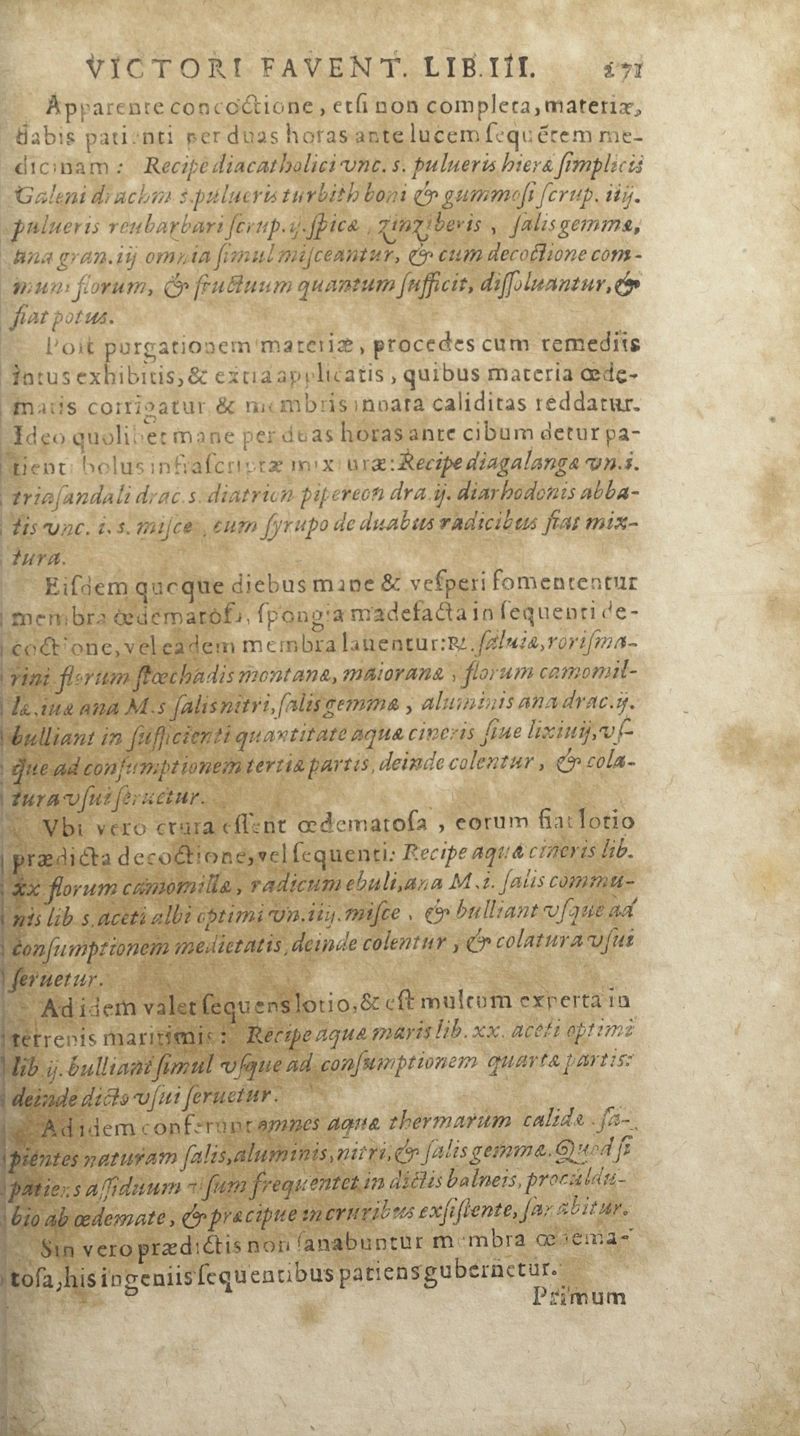 VICTORI FAVENT. LIB. III. 171
Apparente concoctione, etsi non completa, materiæ,
dabis patienti per duas horas ante lucem sequētem me-
dicinam : Recipe diacatholici vnc. s. pulueris hieræ simplicis
Galeni drachm s. pulueris turbith boni & gummosi scrup. iiij.
pulueris reubarbari scrup. ij. spicæ, zinziberis, salis gemmæ,
ana gran. iij omnia simul misceantur, & cum decoctione com-
muni florum, & fructuum quantum sufficit, dissoluantur, &
fiat potus.
Post purgationem materiæ, procedes cum remediis
intus exhibitis, & extra applicatis, quibus materia œde-
matis corrigatur & membris innata caliditas reddatur.
Ideo quolibet mane per duas horas ante cibum detur pa-
tienti bolus infrascriptæ mixturæ: Recipe diagalangæ vn. i.
triasandali drac. s. diatrion pipereon dra. ij. diarhodonis abba-
tis vnc. i. s. misce, cum syrupo de duabus radicibus fiat mix-
tura.
Eisdem quoque diebus mane & vesperi fomententur
membra œdematosa, spongia madefacta in sequenti de-
coctione, vel eadem membra lauentur: ℞. saluiæ, rorisma-
rini florum stœchadis montanæ, maioranæ, florum camomil-
læ, iuæ ana M. s salis nitri, salis gemmæ, aluminis ana drac. ij.
bulliant in sufficienti quantitate aquæ cineris siue lixiuij, vs-
que ad consumptionem tertiæ partis, deinde colentur, & cola-
tura vsui seruetur.
Vbi vero crura essent œdematosa, eorum fiat lotio
prædicta decoctione, vel sequenti: Recipe aquæ cineris lib.
xx florum camomillæ, radicum ebuli, ana M. i. salis commu-
nis lib s. aceti albi optimi vn. iiij. misce, & bulliant vsque ad
consumptionem medietatis, deinde colentur, & colatura vsui
seruetur.
Ad idem valet sequens lotio, & est multum experta in
terrenis maritimis : Recipe aquæ maris lib. xx. aceti optimi
lib ij. bulliant simul vsque ad consumptionem quartæ partis:
deinde dicto vsui seruetur.
Ad idem conferunt omnes aquæ thermarum calidæ sa-
pientes naturam salis, aluminis, nitri, & salis gemmæ. Quod si
patiens assiduum vsum frequentet in dictis balneis, proculdu-
bio ab œdemate, & præcipue in cruribus exsistente, sanabitur.
Sin vero prædictis non sanabuntur membra œdema-
tosa, his ingeniis sequentibus patiens gubernetur.
Primum